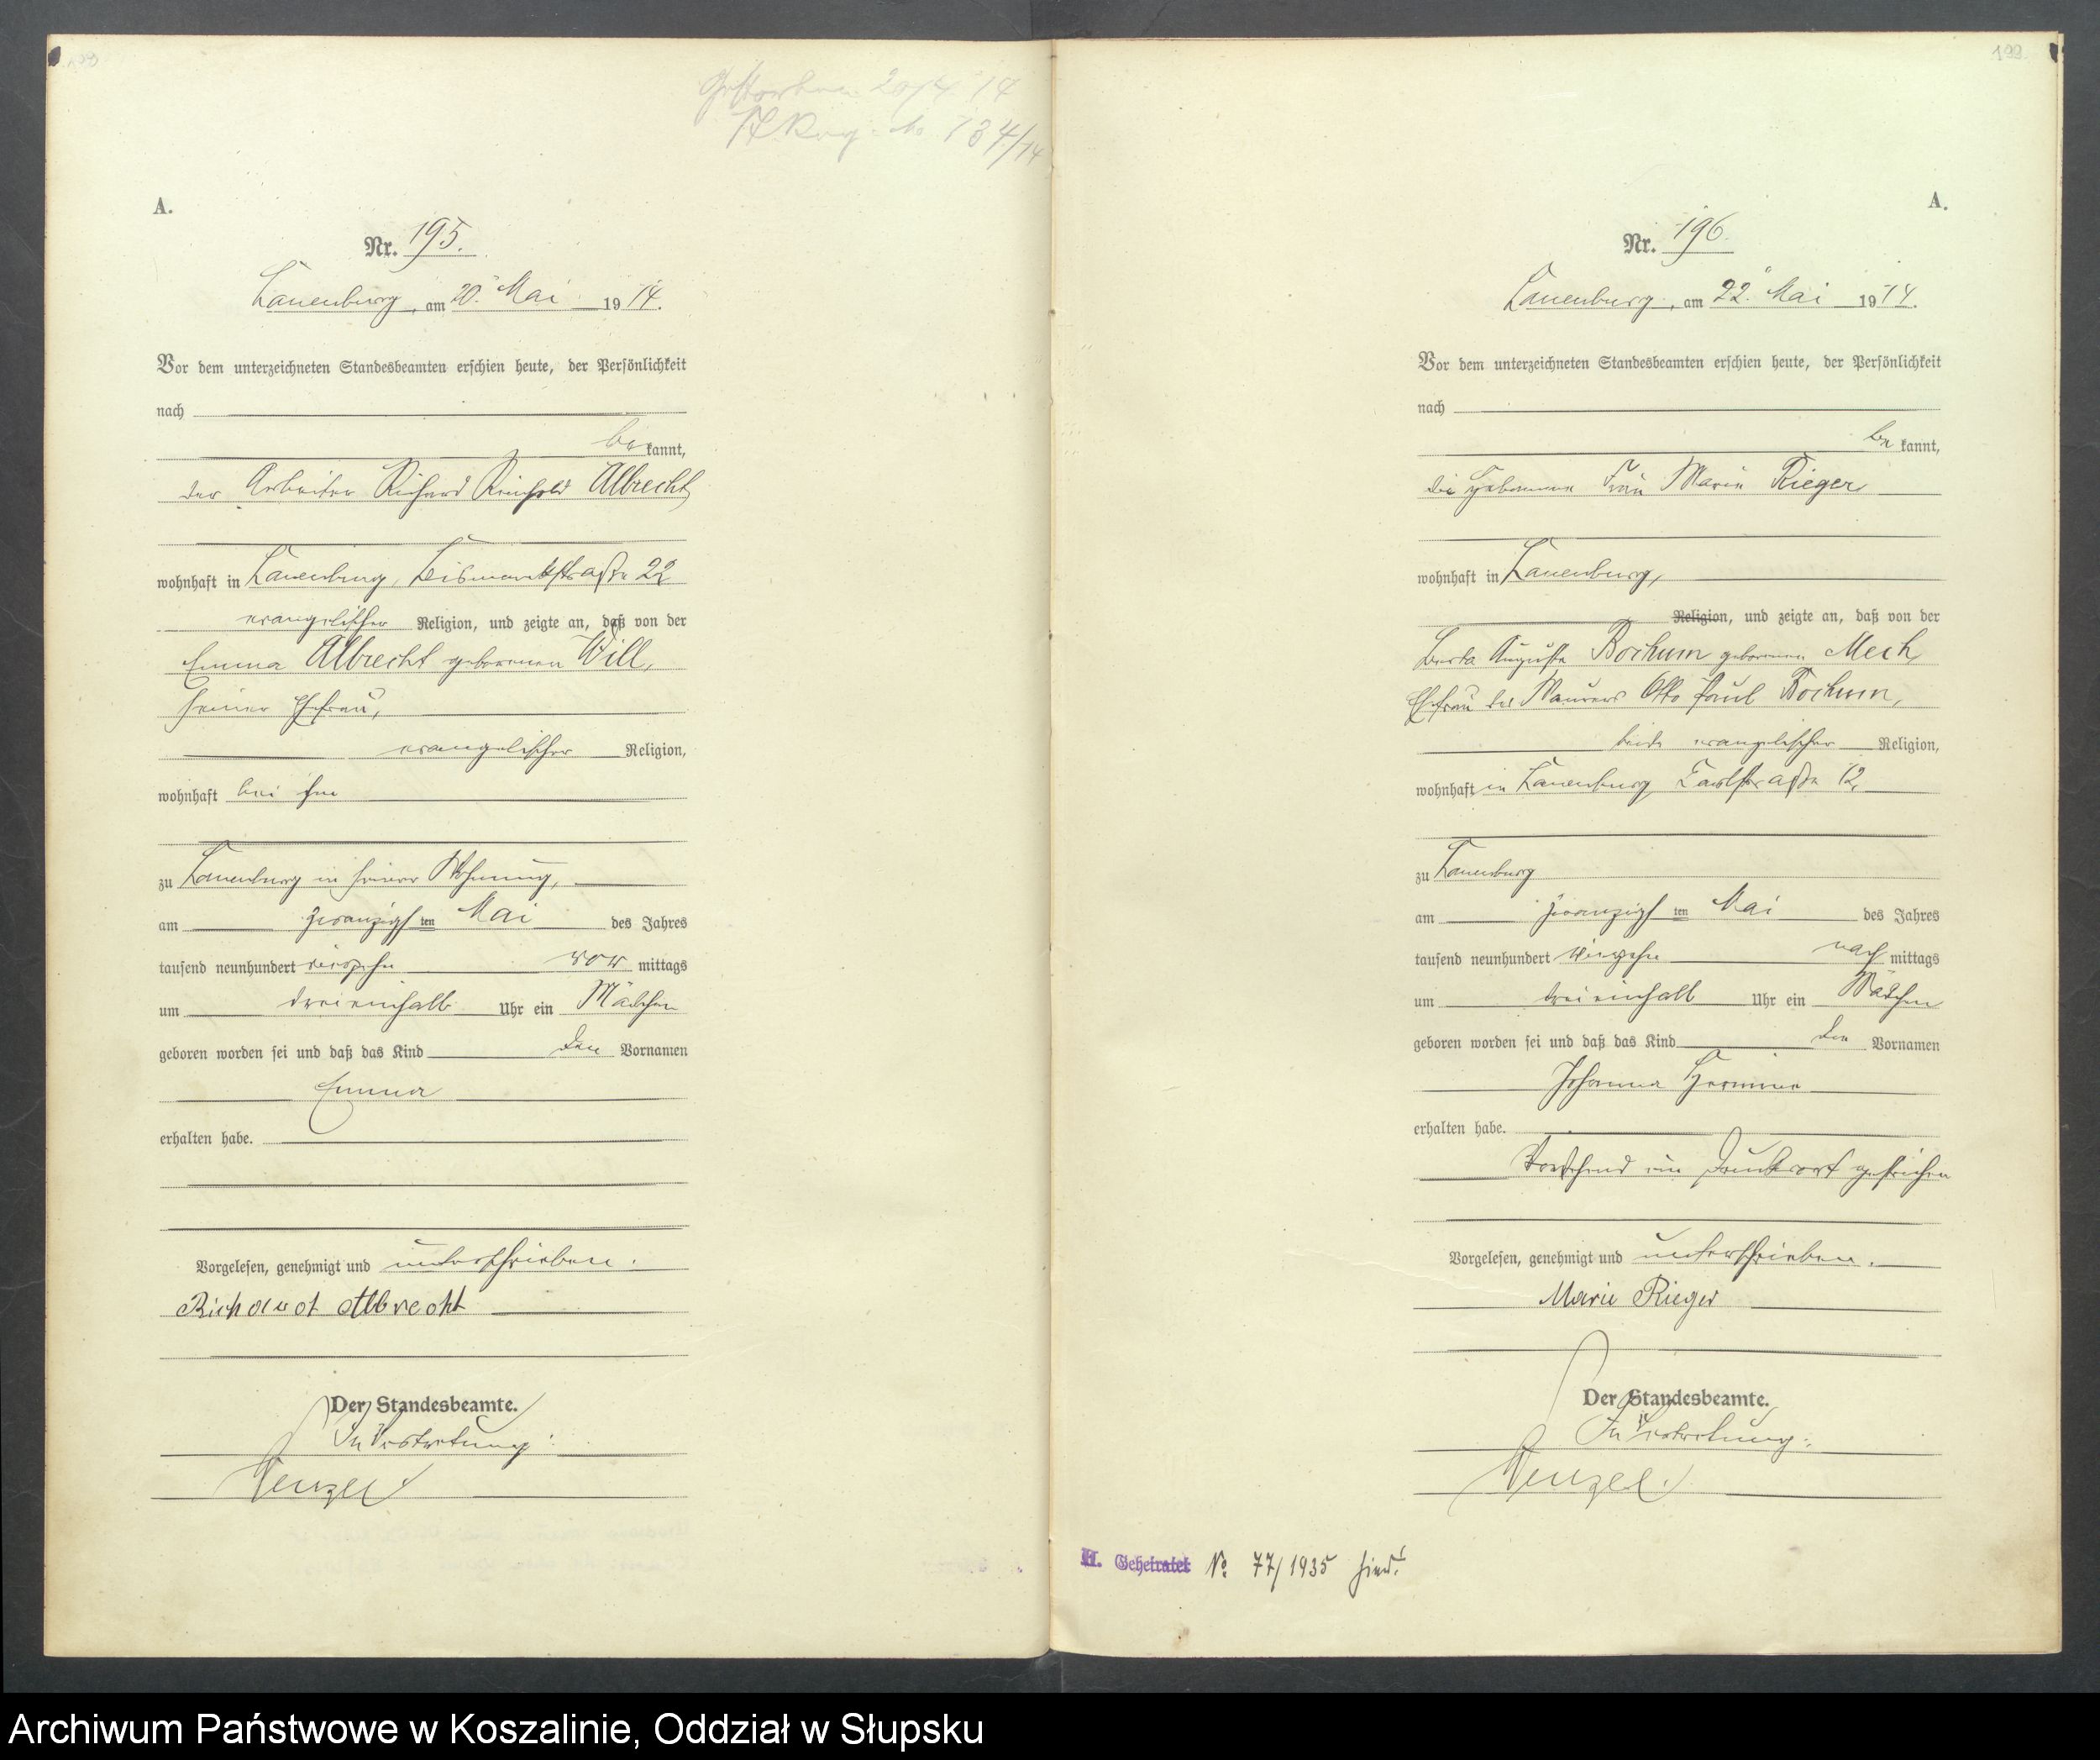 Gestorben 20/4 14
St. Reg. No 134/14
A.
Nr. 195.
Lauenburg, am 20. Mai 1914.
Vor dem unterzeichneten Standesbeamten erschien heute, der Persönlichkeit
nach
bekannt,
der Arbeiter Richard Reinhold Albrecht,
wohnhaft in Lauenburg, Bismarckstraße 22
evangelischer Religion, und zeigte an, daß von der
Emma Albrecht geborenen Will,
seiner Ehefrau,
evangelischer Religion,
wohnhaft bei ihm
zu Lauenburg in seiner Wohnung,
am zwanzigsten Mai des Jahres
tausend neunhundert vierzehn vormittags
um dreieinhalb Uhr ein Mädchen
geboren worden sei und daß das Kind den Vornamen
Emma
erhalten habe.
Vorgelesen, genehmigt und unterschrieben.
Richard Albrecht
Der Standesbeamte.
In Vertretung:
Wenzel
199
A.
Nr. 196.
Lauenburg, am 22. Mai 1914.
Vor dem unterzeichneten Standesbeamten erschien heute, der Persönlichkeit
nach
bekannt,
die Hebamme Frau Marie Rieger
wohnhaft in Lauenburg,
Religion, und zeigte an, daß von der
Berta Auguste Bochum geborenen Mech,
Ehefrau des Maurers Otto Paul Bochum,
beide evangelischer Religion,
wohnhaft in Lauenburg, 12,
zu Lauenburg
am zwanzigsten Mai des Jahres
tausend neunhundert vierzehn nachmittags
um dreieinhalb Uhr ein Mädchen
geboren worden sei und daß das Kind den Vornamen
Johanna Hermine
erhalten habe.
Vorstehend ein Druckwort gestrichen
Vorgelesen, genehmigt und unterschrieben.
Marie Rieger
Der Standesbeamte.
In Vertretung:
Wenzel.
H. Geheiratet No 77/1935 hier!
Archiwum Państwowe w Koszalinie, Oddział w Słupsku